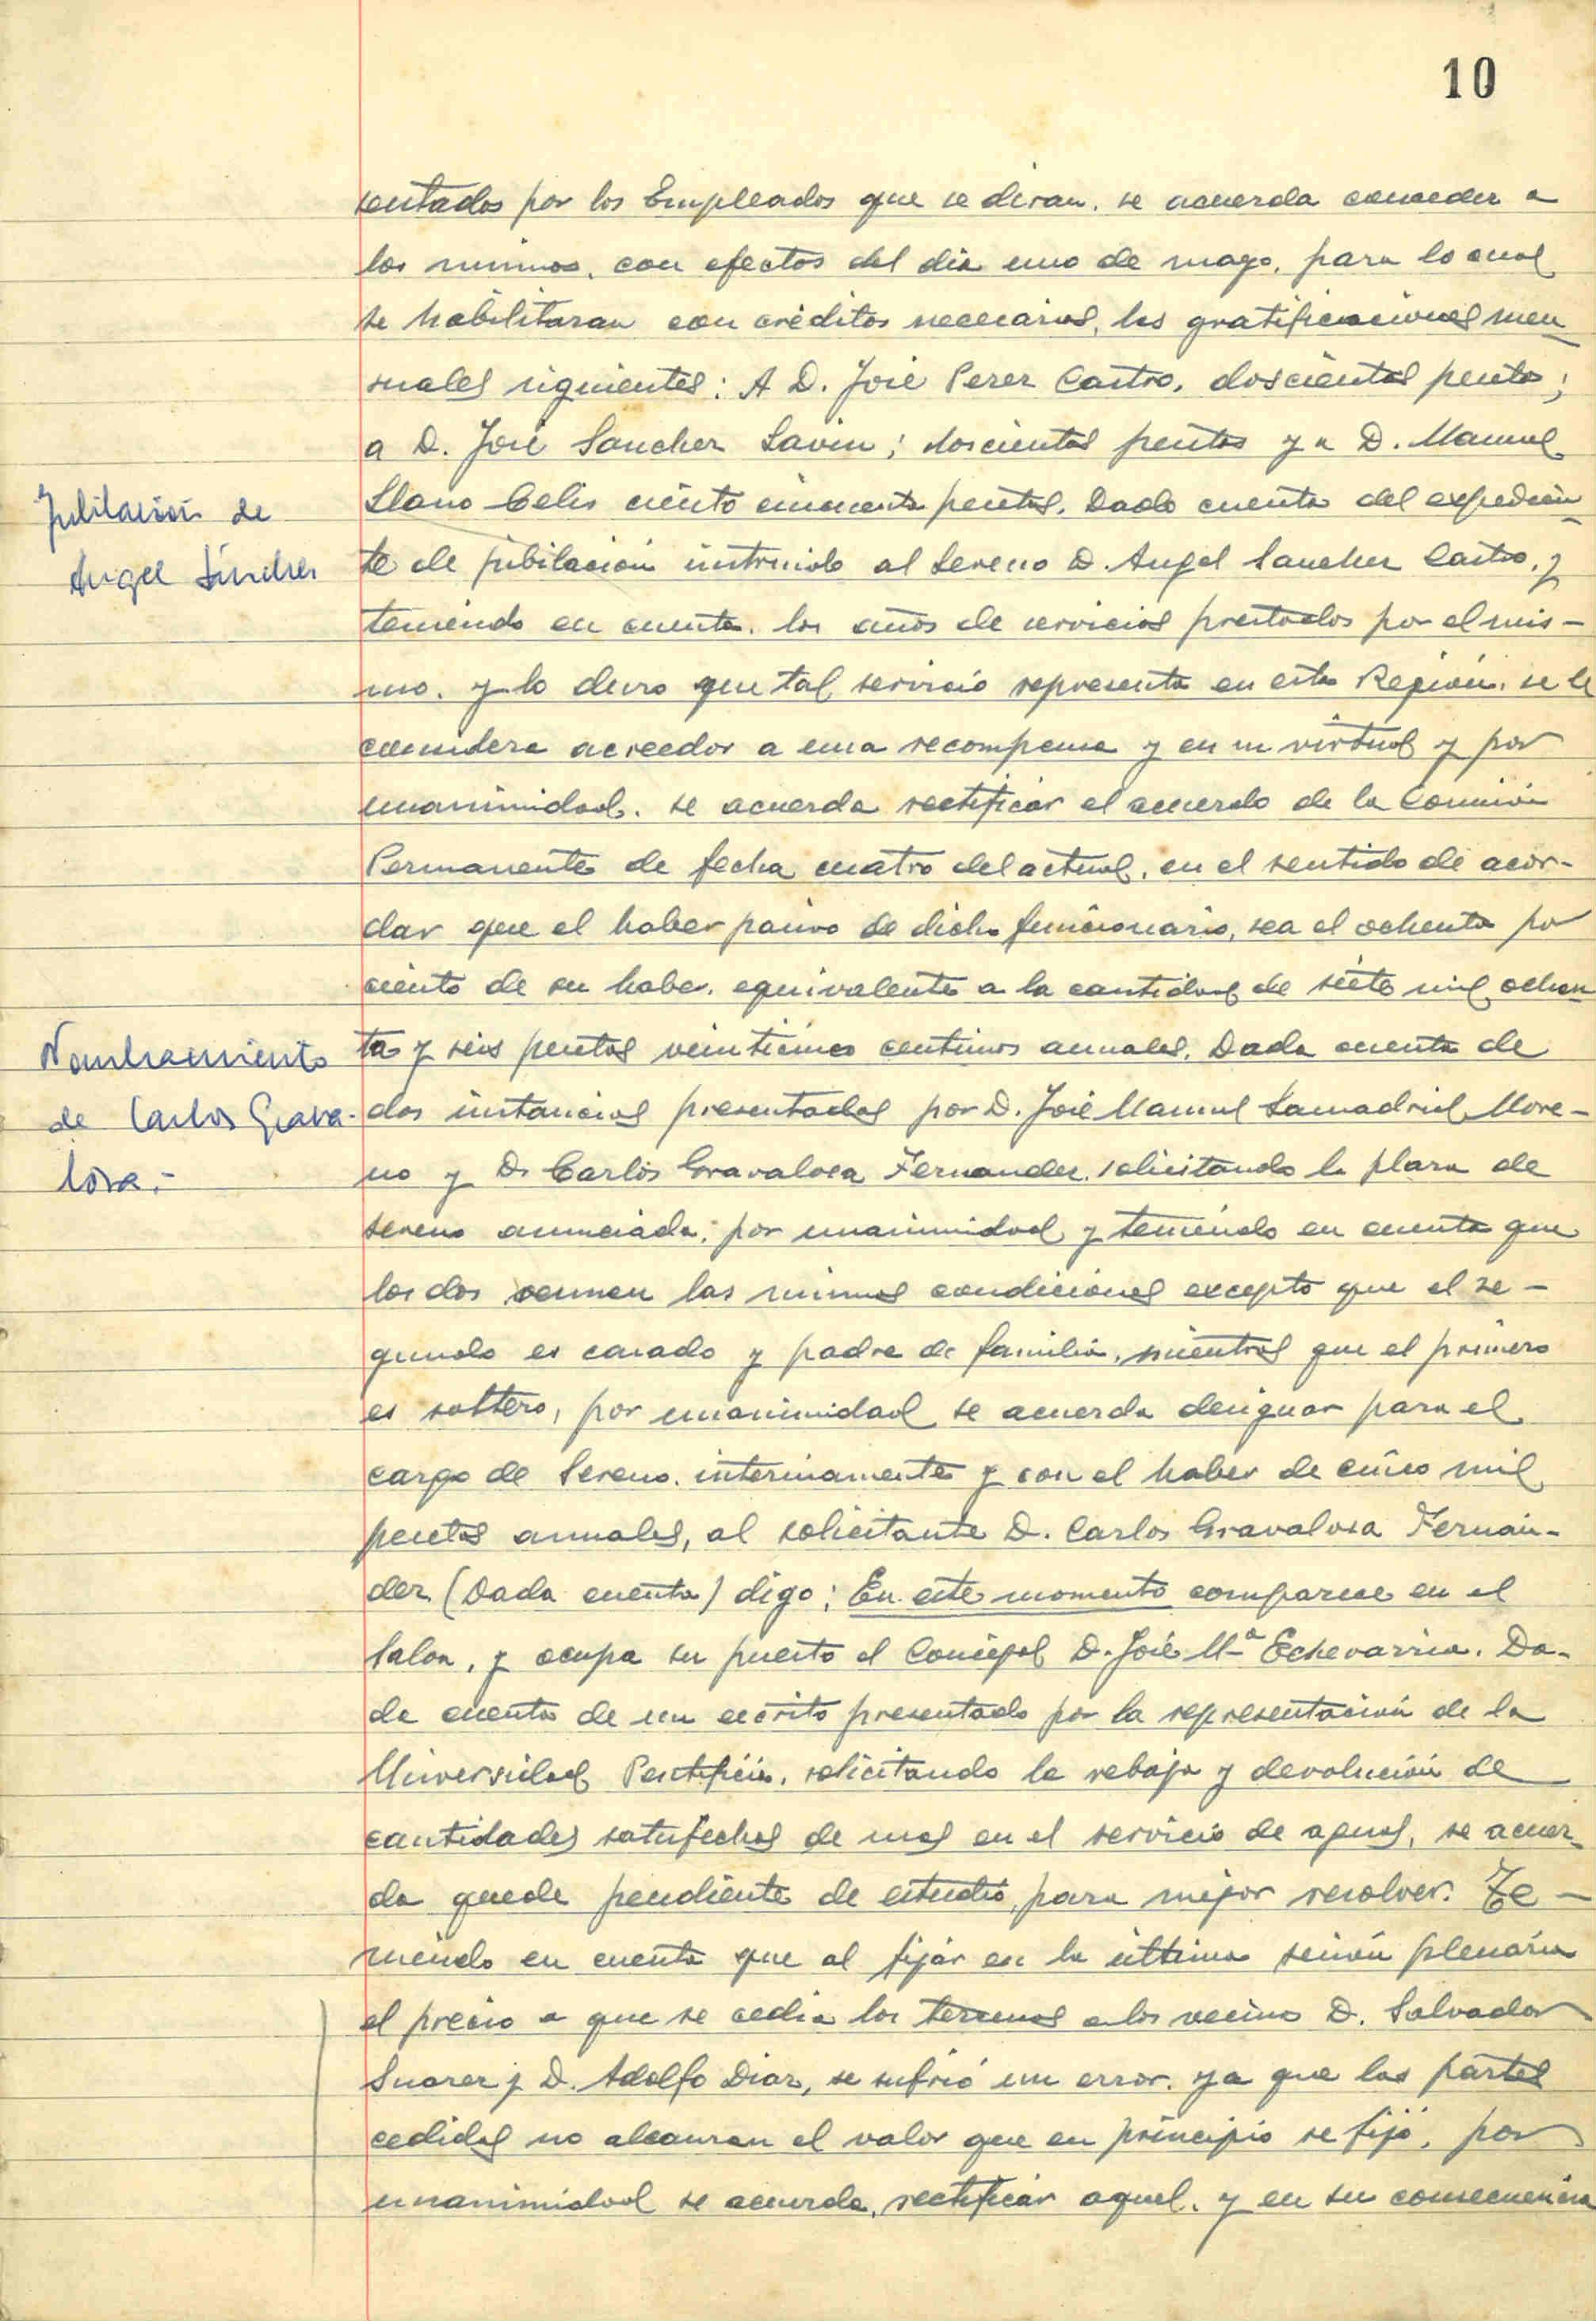 10
sentados por los Empleados que se diran, se acuerda conceder a
los mismos, con efectos del dia uno de mayo, para lo cual
se habilitaran con créditos necesarios, las gratificaciones men
suales siguientes: A D. José Perez Castro, doscientas pesetas;
a D. José Sanchez Lavin; doscientas pesetas y a D. Manuel
Llano Celis ciento cincuenta pesetas. Dada cuenta del expedien
Jubilación de
Angel Sánchez
te de jubilación instruido al Sereno D. Angel Sanchez Castro, y
teniendo en cuenta, los años de servicios prestados por el mis-
mo, y lo duro que tal servicio representa en esta Región, se le
considera acreedor a una recompensa y en su virtud y por
unanimidad, se acuerda rectificar el acuerdo de la Comisión
Permanente de fecha cuatro del actual, en el sentido de acor-
dar que el haber pasivo de dicho funcionario, sea el ochenta por
ciento de su haber, equivalente a la cantidad de siete mil ochen
Nombramiento
de Carlos Grava-
losa.-
ta y seis pesetas veinticinco centimos anuales. Dada cuenta de
dos instancias presentadas por D. José Manuel Samadrid More-
no y D. Carlos Gravalosa Fernandez, solicitando la plaza de
sereno anunciada; por unanimidad y teniendo en cuenta que
los dos reunen las mismas condiciones excepto que el se-
gundo es casado y padre de familia, mientras que el primero
es soltero, por unanimidad se acuerda designar para el
cargo de Sereno, interinamente y con el haber de cinco mil
pesetas anuales, al solicitante D. Carlos Gravalosa Fernán-
dez (Dada cuenta) digo: En este momento comparece en el
Salon, y ocupa su puesto el Concejal D. José Mª Echevarria. Da-
da cuenta de un escrito presentado por la representación de la
Universidad Pontificia, solicitando la rebaja y devolución de
cantidades satisfechas de mas en el servicio de aguas, se acuer-
da quede pendiente de estudio, para mejor resolver. Te-
niendo en cuenta que al fijar en la última sesión plenaria
el precio a que se cedia los terrenos a los vecinos D. Salvador
Suarez y D. Adolfo Diaz, se sufrió un error, ya que las partes
cedidas no alcanzan el valor que en principio se fijó, por
unanimidad se acuerda, rectificar aquel, y en su consecuencia